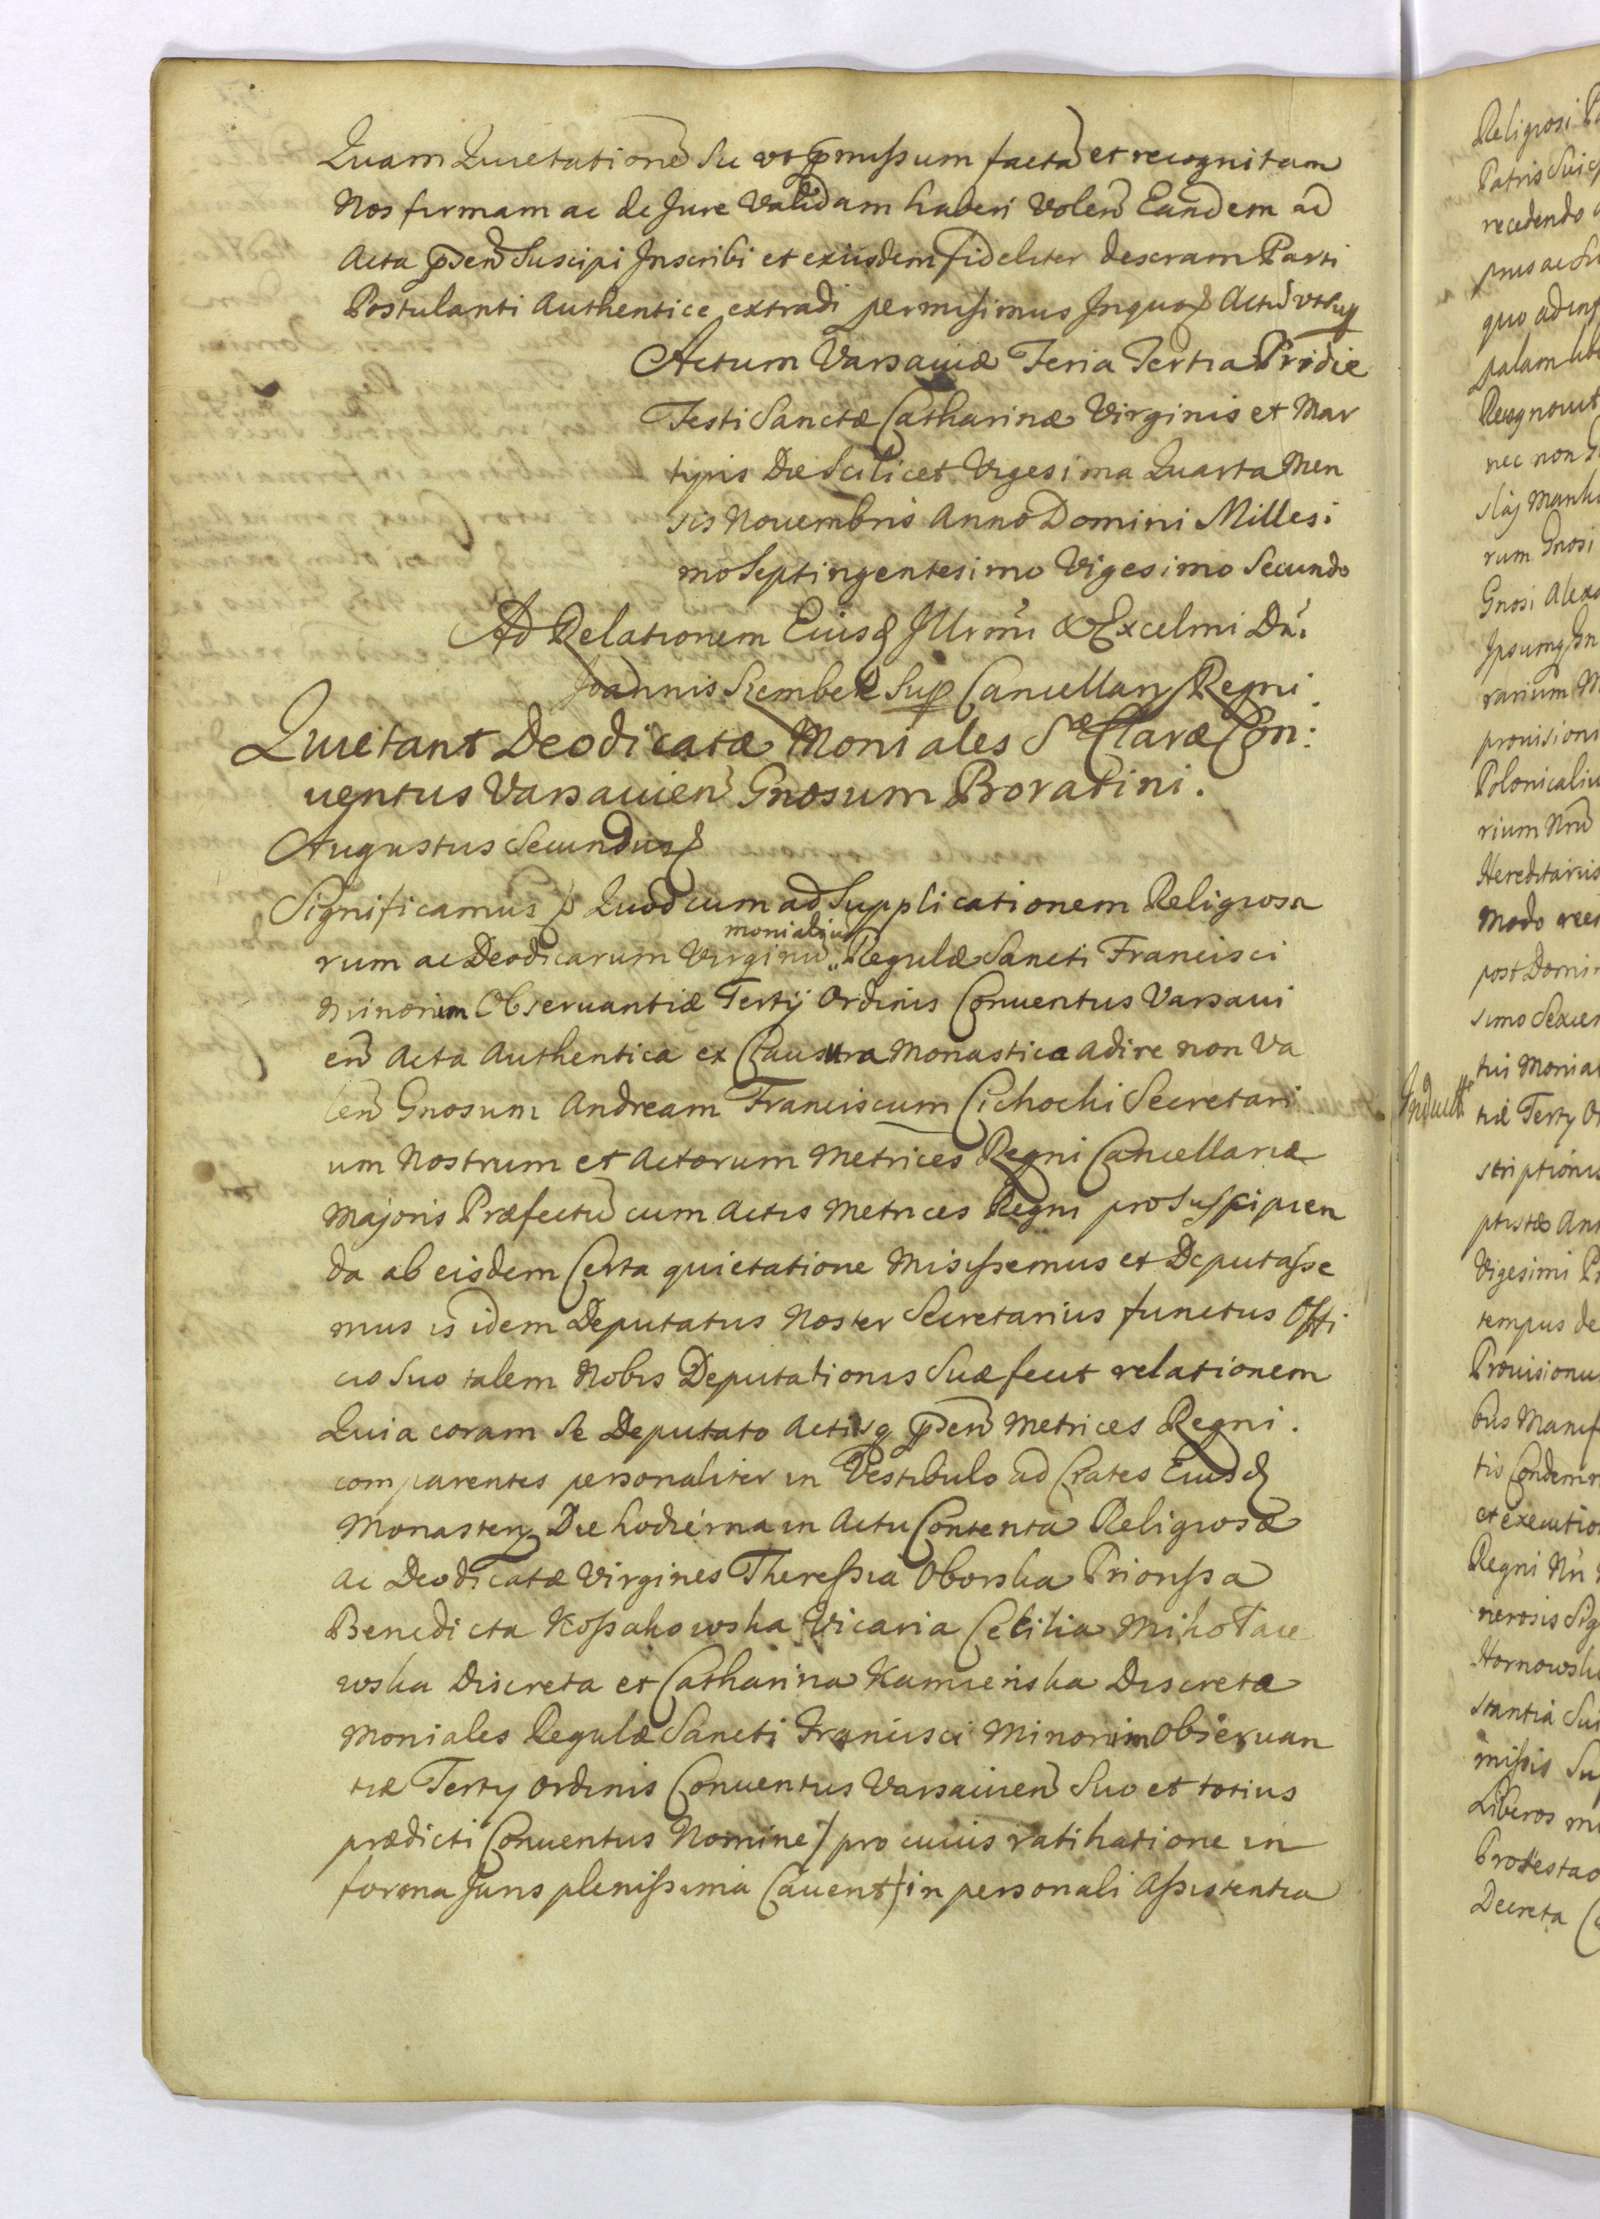 Quam Quietationē Sic vt p̄missum factā et recognitam
Nos firmam ac de Jure Validam haberi Volen̄ Eandem ad
Acta p̄sen̄ Suscipi Inscribi et exijsdem fideliter descram Parti
Postulanti Authentice extradi permisimus Inquor̄ Actū vt Supr
Actum Varsaviæ Feria Tertia Pridie
Festi Sanctæ Catharinæ Virginis et Mar
tyris Die Scilicet Vigesima Quarta Men
sis Nouembris Anno Domini Millesi
mo Septingentesimo Vigesimo Secundo
Ad Relationem Eiusd Illrm̄i & Excelmi Dn̄i
Joannis Szembek Sup Cancellarij Regni
Quietant Deodicatæ Moniales Sæ Claræ Con:
uentus Varsauien̄ Gnosum Boratini.
Augustus Secundus
Significamus Quod cum ad Supplicationem Religiosa
monialiū
rum ac Deodicarum Virginū Regulæ Sancti Francisci
Minorum Obseruantiæ Tertij Ordinis Conuentus Varsaui
en̄ Acta Authentica ex Claustra Monastica adire non Va
len̄ Gnosum Andream Franciscum Cichochi Secretari
um Nostrum et Actorum Metrices Regni Cancellariæ
Majoris Præfectū cum Actis Metrices Regni pro Suscipien
da ab eisdem Certa quietatione Misissemus et Deputasse
mus is idem Deputatus Noster Secretarius functus Offi
cio Suo talem Nobis Deputationis Suæ fecit relationem
Quia coram Se Deputato Actisq p̄sen̄ Metrices Regni.
comparentes personaliter in Vestibulo ad Crates Eiusd
Monasterij Die hodierna in Actu Contenta Religiosæ
ac Deodicatæ Virgines Theressia Oborska Priorissa
Benedicta Kossakowska Vicaria Cecilia Mikołaie
wska Discreta et Catharina Kamieńska Discretæ
Moniales Regulæ Sancti Francisci Minorum Obseruan
tiæ Tertij Ordinis Conuentus Varsauien̄ Suo et totius
prædicti Conuentus Nomine / pro cuius ratihatione in
forma Juris plenissima Cauent / in personali Assistentia
Religiosi
recedendo
quo ad
palam
Recognouit
nec non
rum Gnosi
Gnosi
rarium
prouisioni
rium Nrū
Hereditarius
Modo
Induct
post
tui
tiæ Tertij
Vigesimi
tempus de
tis
Regni Nri
Liberos
Decreta